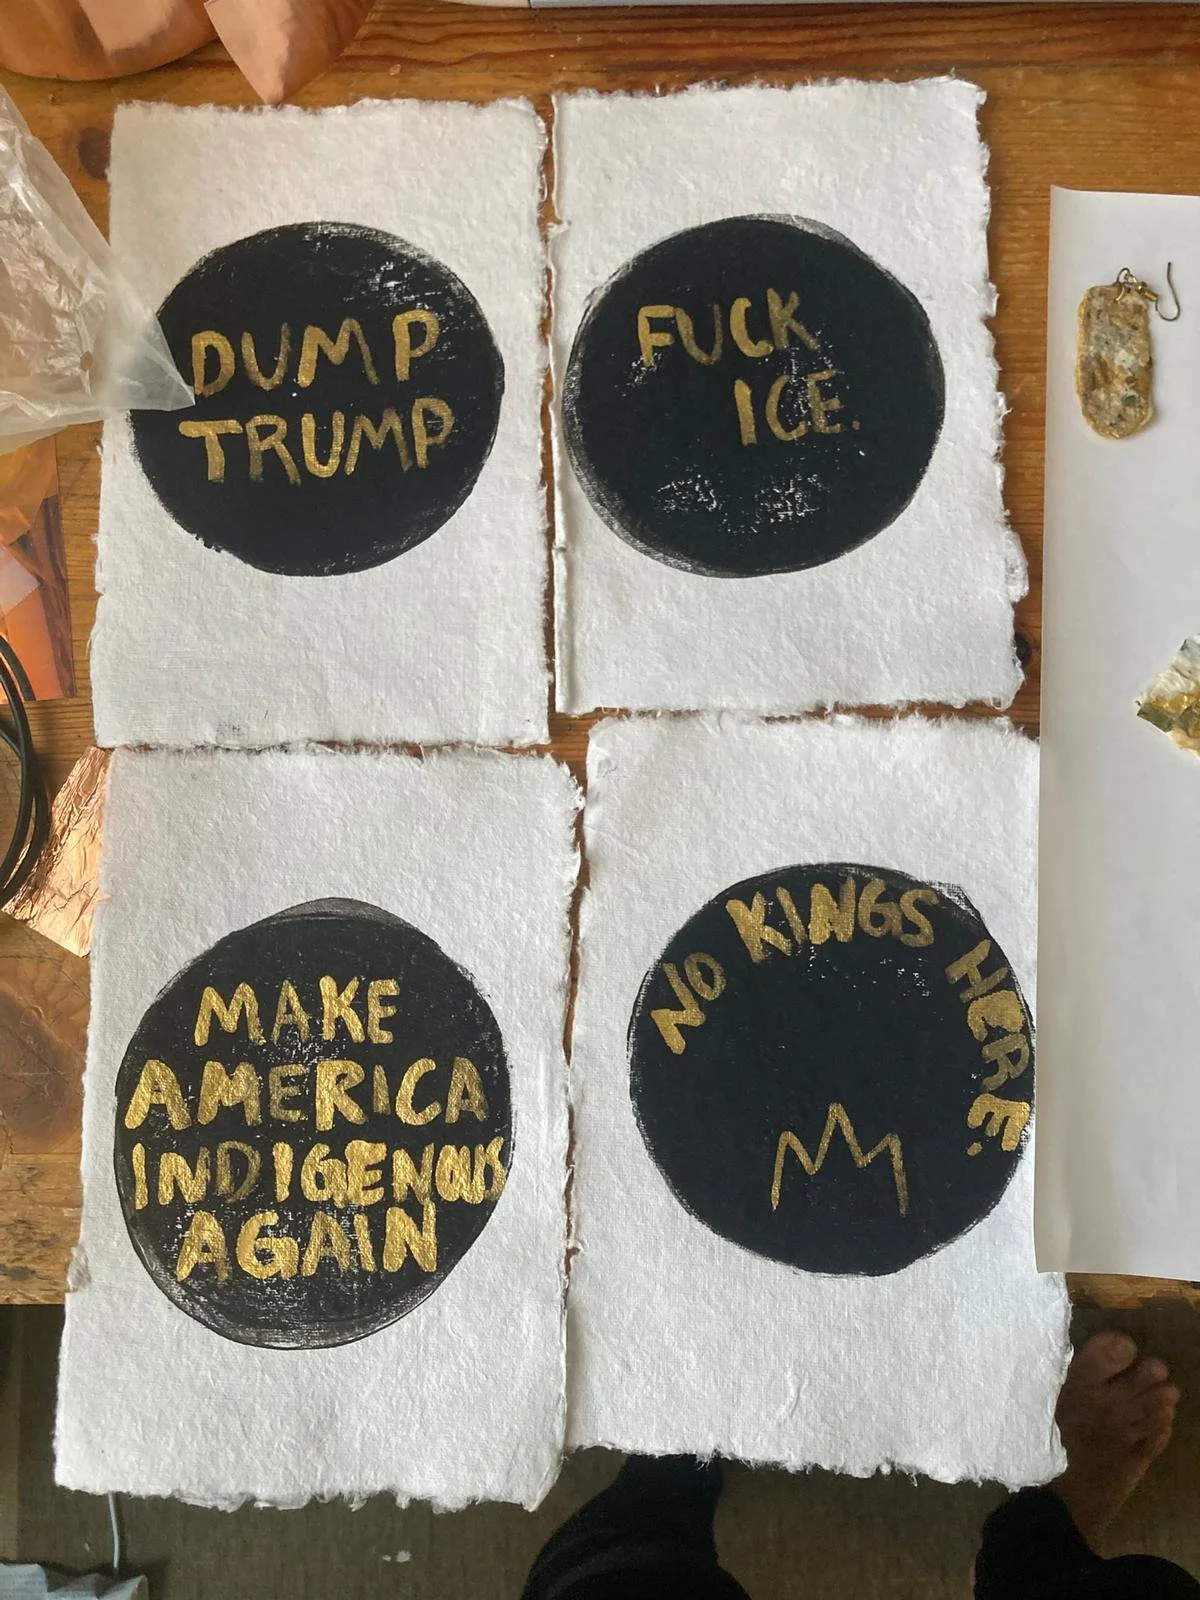 DUMP
TRUMP
FUCK
ICE.
MAKE
AMERICA
INDIGENOUS
AGAIN
NO KINGS HERE.